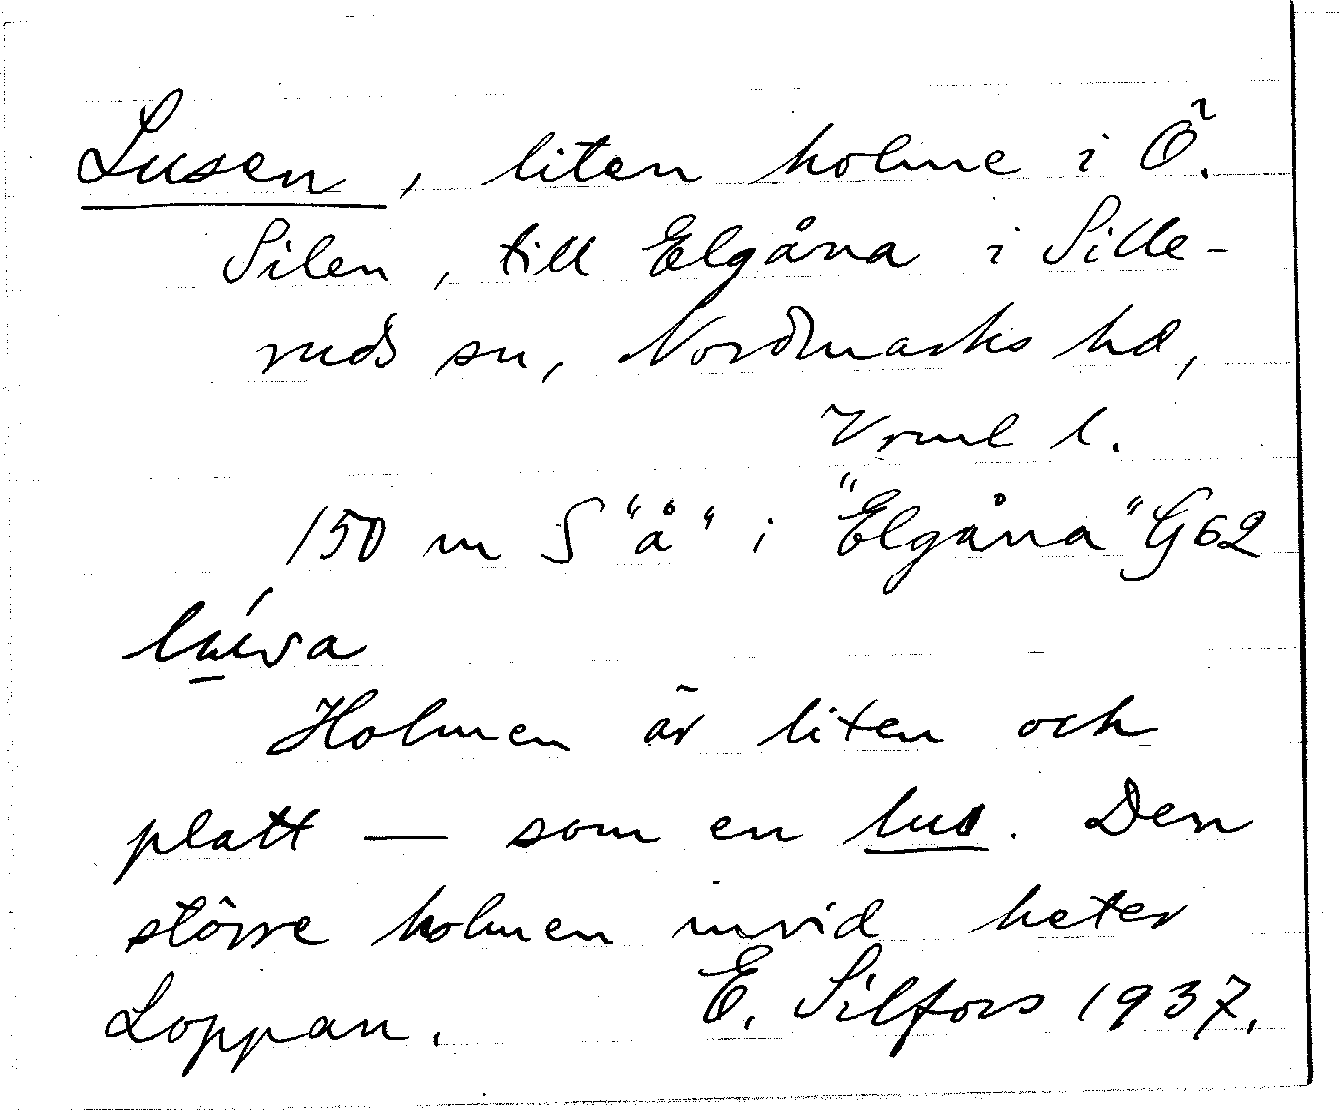 Lusen, liten holme i Ö.
Silen, till Elgåna i Sille-
ruds sn, Nordmarks hd,
Vrml l.
150 m S "å" i "Elgåna" G62
Holmen är liten och
platt — som en lus. Den
större holmen invid heter
Loppan. E. Silfors 1937.